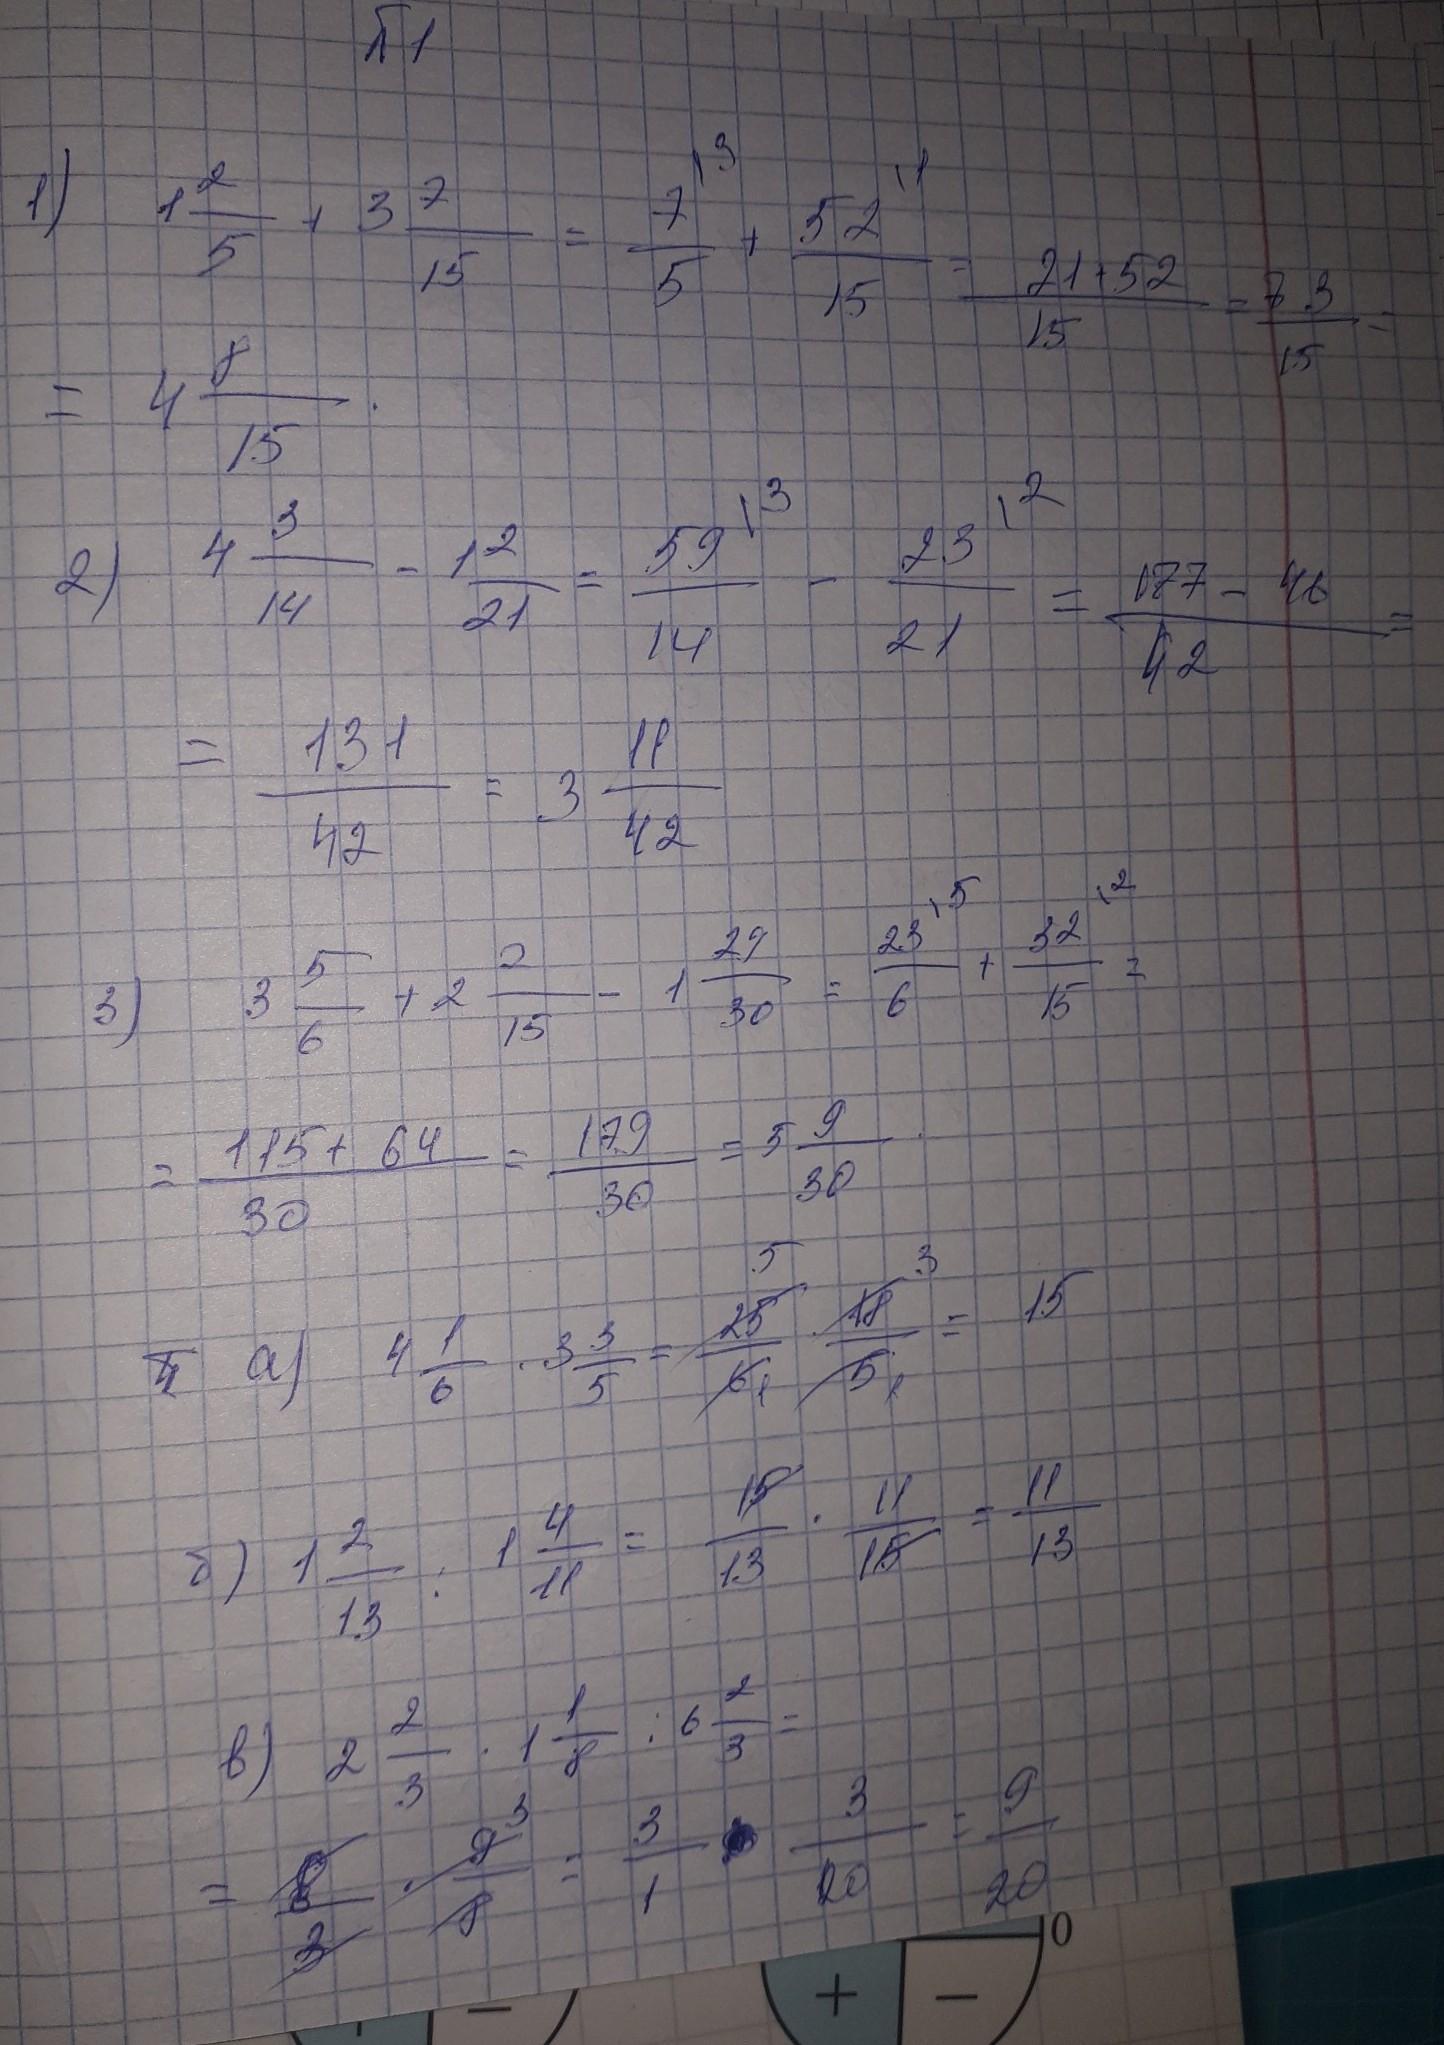 №1
1) 1 2/5 + 3 7/15 = 7/5 \3 + 52/15 \1 = (21+52)/15 = 73/15 =
= 4 8/15.
2) 4 3/14 - 1 2/21 = 59/14 \3 - 23/21 \2 = (177 - 46)/42 =
= 131/42 = 3 11/42
3) 3 5/6 + 2 2/15 - 1 29/30 = 23/6 \5 + 32/15 \2 =
= (115 + 64)/30 = 179/30 = 5 9/30
а) 4 1/6 · 3 3/5 = 25/6 · 18/5 = 15
5 3
1 1
б) 1 2/13 : 1 4/11 = 15/13 · 11/15 = 11/13
в) 2 2/3 · 1 1/8 : 6 2/3 =
= 8/3 · 9/8 = 3/1 · 3/20 = 9/20
3
+ -
+ -
0